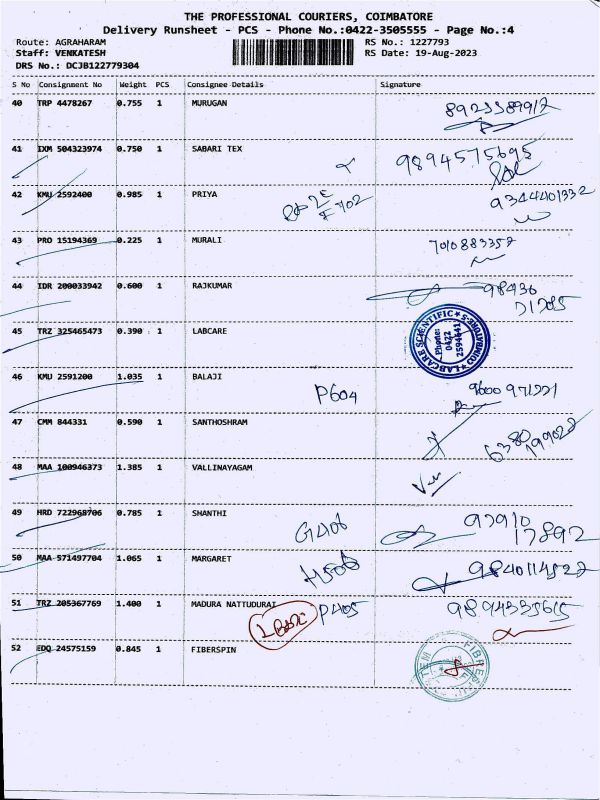 THE PROFESSIONAL COURIERS, COIMBATORE
Delivery Runsheet - PCS - Phone No.:0422-3505555 - Page No.:4
Route: AGRAHARAM RS No.: 1227793
Staff: VENKATESH RS Date: 19-Aug-2023
DRS No.: DCJB122779304
S No Consignment No Weight PCS Consignee Details Signature
40 TRP 4478267 0.755 1 MURUGAN
41 IXM 504323974 0.750 1 SABARI TEX 9894575695
42 KMU 2592400 0.985 1 PRIYA 9344401332
43 PRO 15194369 0.225 1 MURALI 7010883352
44 IDR 200033942 0.600 1 RAJKUMAR 98436
45 TRZ 325465473 0.390 1 LABCARE
LABCARE SCIENTIFIC COIMBATORE-5
Phone:
0422
2594641
46 KMU 2591200 1.035 1 BALAJI P604 9600971221
47 CMM 844331 0.590 1 SANTHOSHRAM
48 MAA 100946373 1.385 1 VALLINAYAGAM
49 HRD 722968706 0.785 1 SHANTHI G406 97910
17892
50 MAA 571497704 1.065 1 MARGARET H506 9840114522
51 TRZ 205367769 1.400 1 MADURA NATTUDURAI P405 9894335615
52 EDQ 24575159 0.845 1 FIBERSPIN